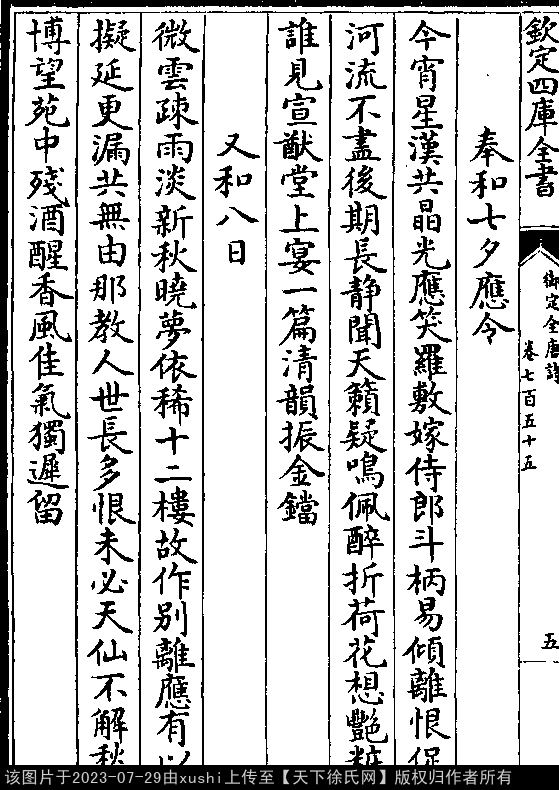 欽定四庫全書
御定全唐詩
卷七百五十五
五
奉和七夕應令
今宵星漢共晶光應笑羅敷嫁侍郎斗柄易傾離恨促
河流不盡後期長靜聞天籟疑鳴佩醉折荷花想艷粧
誰見宣猷堂上宴一篇清韻振金鐺
又和八日
微雲疎雨淡新秋曉夢依稀十二樓故作別離應有以
擬延更漏共無由那教人世長多恨未必天仙不解愁
博望苑中殘酒醒香風佳氣獨遲留
该图片于2023-07-29由xushi上传至【天下徐氏网】版权归作者所有